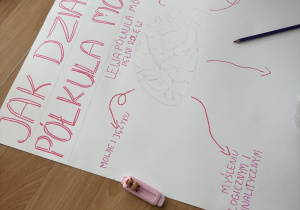 JAK DZIA
PÓŁKULA MÓ
LEWA PÓŁKULA MÓ
MOWIE I JĘZYKU
MYŚLENIU
LOGICZNYM I
ANALITYCZNYM